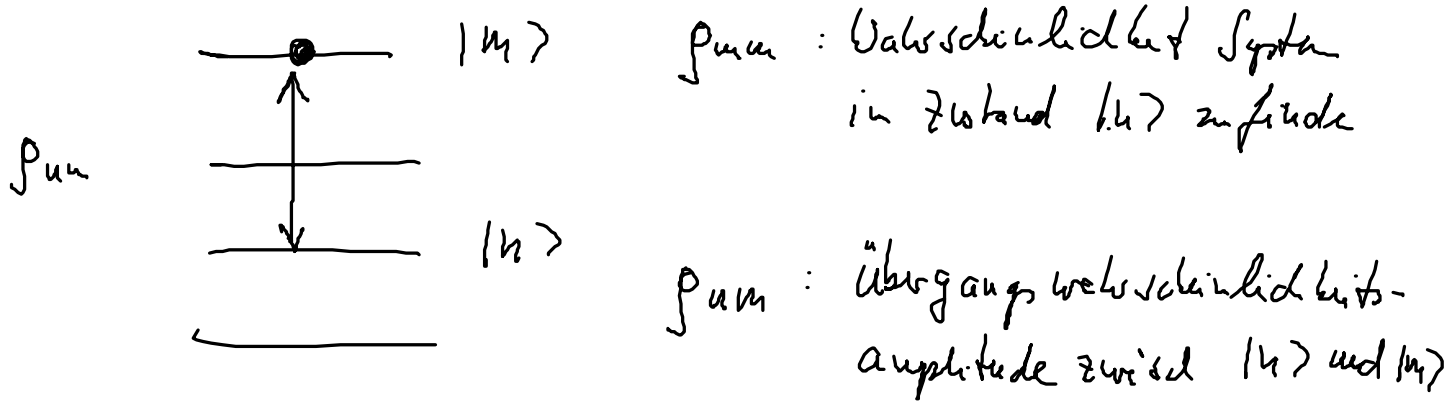 |m⟩
ρmm : Wahrscheinlichkeit System
in Zustand |m⟩ zu finde
ρnm
|n⟩
ρnm : Übergangswahrscheinlichkeits-
amplitude zwisch |n⟩ und |m⟩